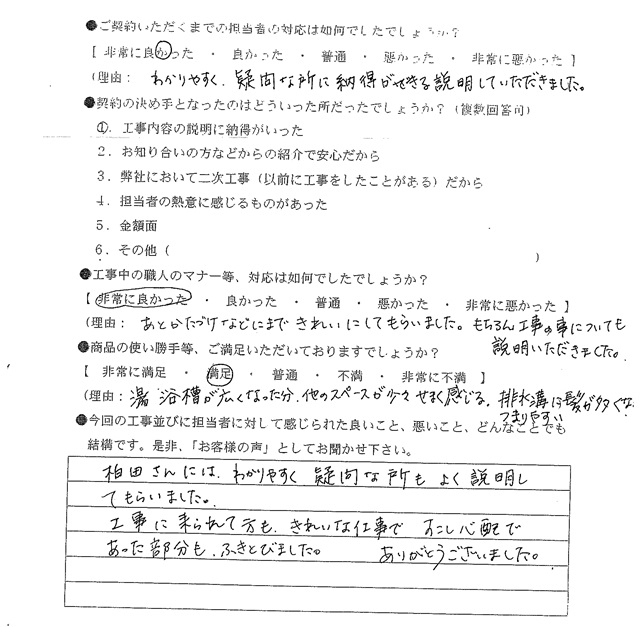 ●ご契約いただくまでの担当者の対応は如何でしたでしょうか？
【 非常に良かった ・ 良かった ・ 普通 ・ 悪かった ・ 非常に悪かった 】
(理由： わかりやすく、疑問な所に納得ができる説明していただきました。
●契約の決め手となったのはどういった所だったでしょうか？（複数回答可）
①．工事内容の説明に納得がいった
２．お知り合いの方などからの紹介で安心だから
３．弊社において二次工事（以前に工事をしたことがある）だから
４．担当者の熱意に感じるものがあった
５．金額面
６．その他（ ）
●工事中の職人のマナー等、対応は如何でしたでしょうか？
【 非常に良かった ・ 良かった ・ 普通 ・ 悪かった ・ 非常に悪かった 】
(理由： あとかたづけなどにまできれいにしてもらいました。もちろん工事の事についても
説明いただきました。
●商品の使い勝手等、ご満足いただいておりますでしょうか？
【 非常に満足 ・ 満足 ・ 普通 ・ 不満 ・ 非常に不満 】
(理由： 湯浴槽が広くなった分、他のスペースが少々せまく感じる。排水溝に髪が多くな
つまりやすい
●今回の工事並びに担当者に対して感じられた良いこと、悪いこと、どんなことでも
結構です。是非、「お客様の声」としてお聞かせ下さい。
柏田さんには、わかりやすく疑問な所もよく説明し
てもらいました。
工事に来られて方も、きれいな仕事で すこし心配で
あった部分も、ふきとびました。 ありがとうございました。